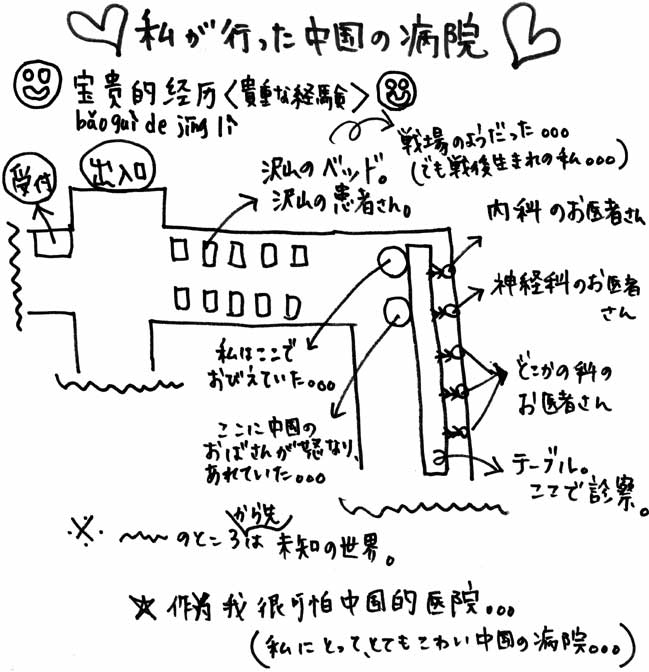 私が行った中国の病院
宝贵的经历〈貴重な経験〉
bǎo guì de jīng lì
戦場のようだった...
(でも戦後生まれの私...)
受付
出入口
沢山のベッド。
沢山の患者さん。
内科のお医者さん
神経科のお医者
さん
私はここで
おびえていた...
どこかの科の
お医者さん
ここに中国の
おばさんが怒なり、
あれていた...
テーブル。
ここで診察。
から先
※ 〜〜のところは未知の世界。
☆ 作为我很可怕中国的医院...
(私にとって、とてもこわい中国の病院...)